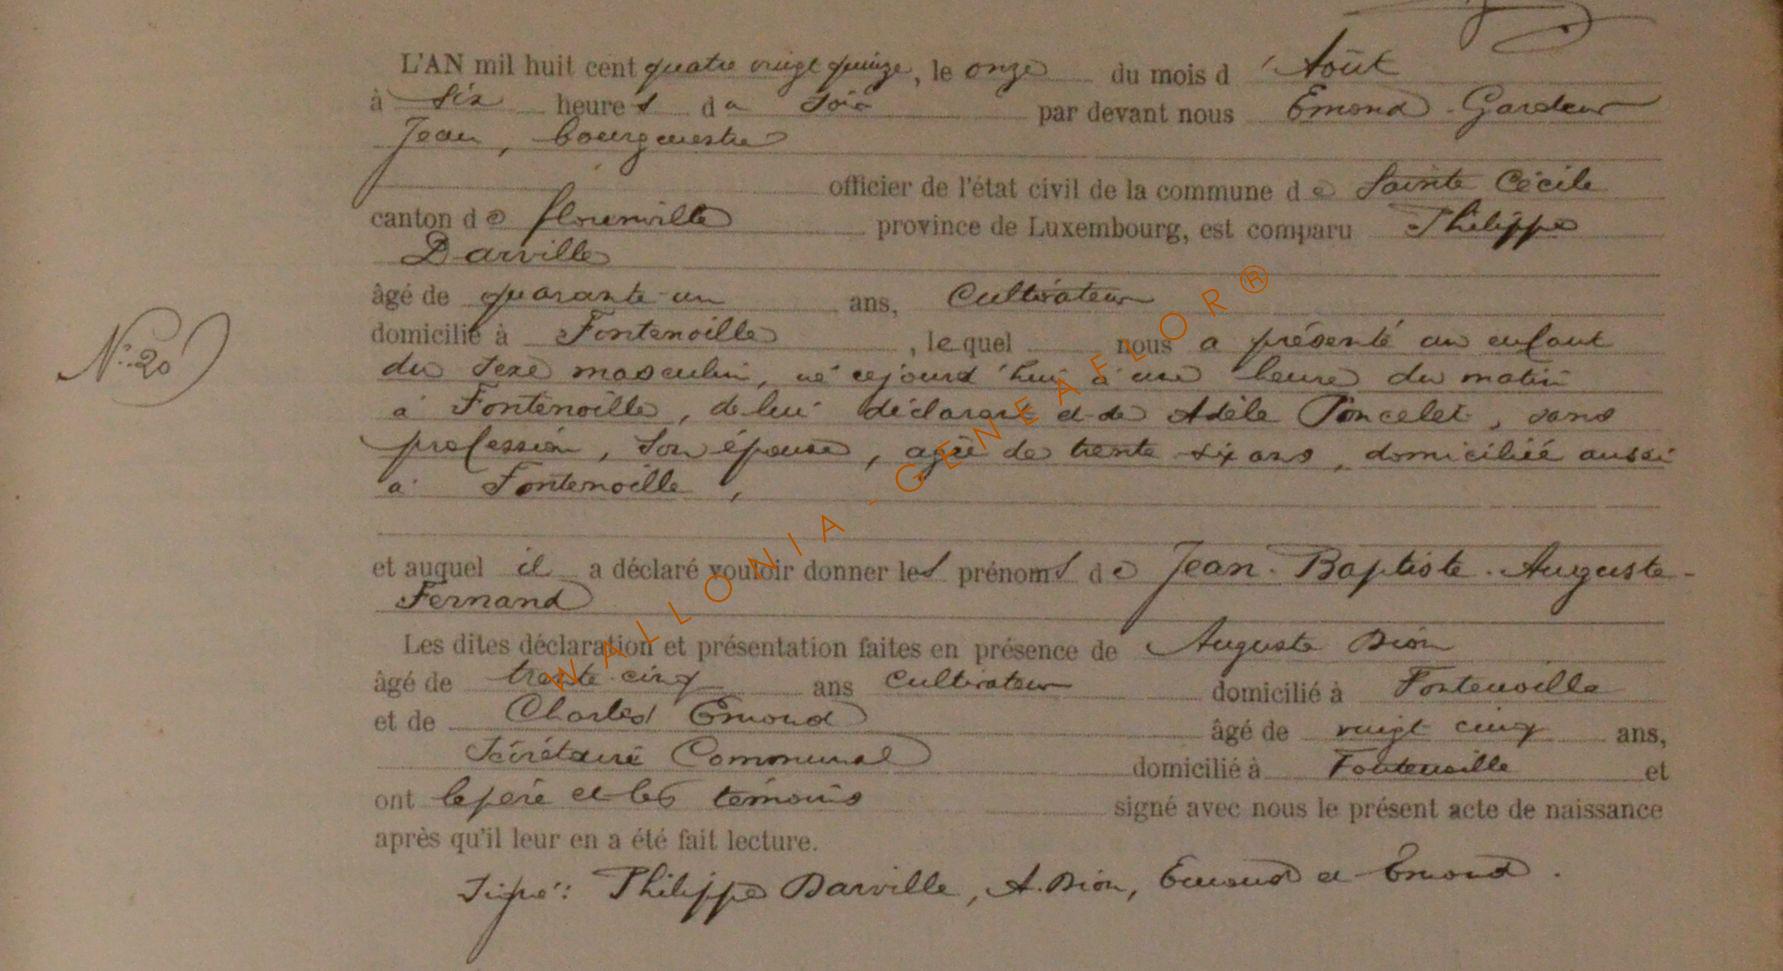 L'AN mil huit cent quatre vingt quinze, le onze du mois d'Août
à six heures du soir par devant nous Emond-Gardeur
Jean, bourgmestre
officier de l'état civil de la commune de Sainte Cécile
canton de florenville province de Luxembourg, est comparu Philippe
Darville
âgé de quarante-un ans, Cultivateur
domicilié à Fontenoille, lequel nous a présenté un enfant
N° 20
du sexe masculin, né cejourd'hui à une heure du matin
à Fontenoille, de lui déclarant et de Adèle Poncelet, sans
profession, son épouse, agée de trente six ans, domiciliée aussi
à Fontenoille,
et auquel il a déclaré vouloir donner les prénoms de Jean-Baptiste-Auguste-
Fernand
Les dites déclaration et présentation faites en présence de Auguste Dion
âgé de trente-cinq ans Cultivateur domicilié à Fontenoille
et de Charles Emond âgé de vingt cinq ans,
Sécrétaire Communal domicilié à Fontenoille et
ont le père et les témoins signé avec nous le présent acte de naissance
après qu'il leur en a été fait lecture.
Signé: Philippe Darville, A. Dion, Emond et Emond.
WALLONIA - GENEAFLOR®